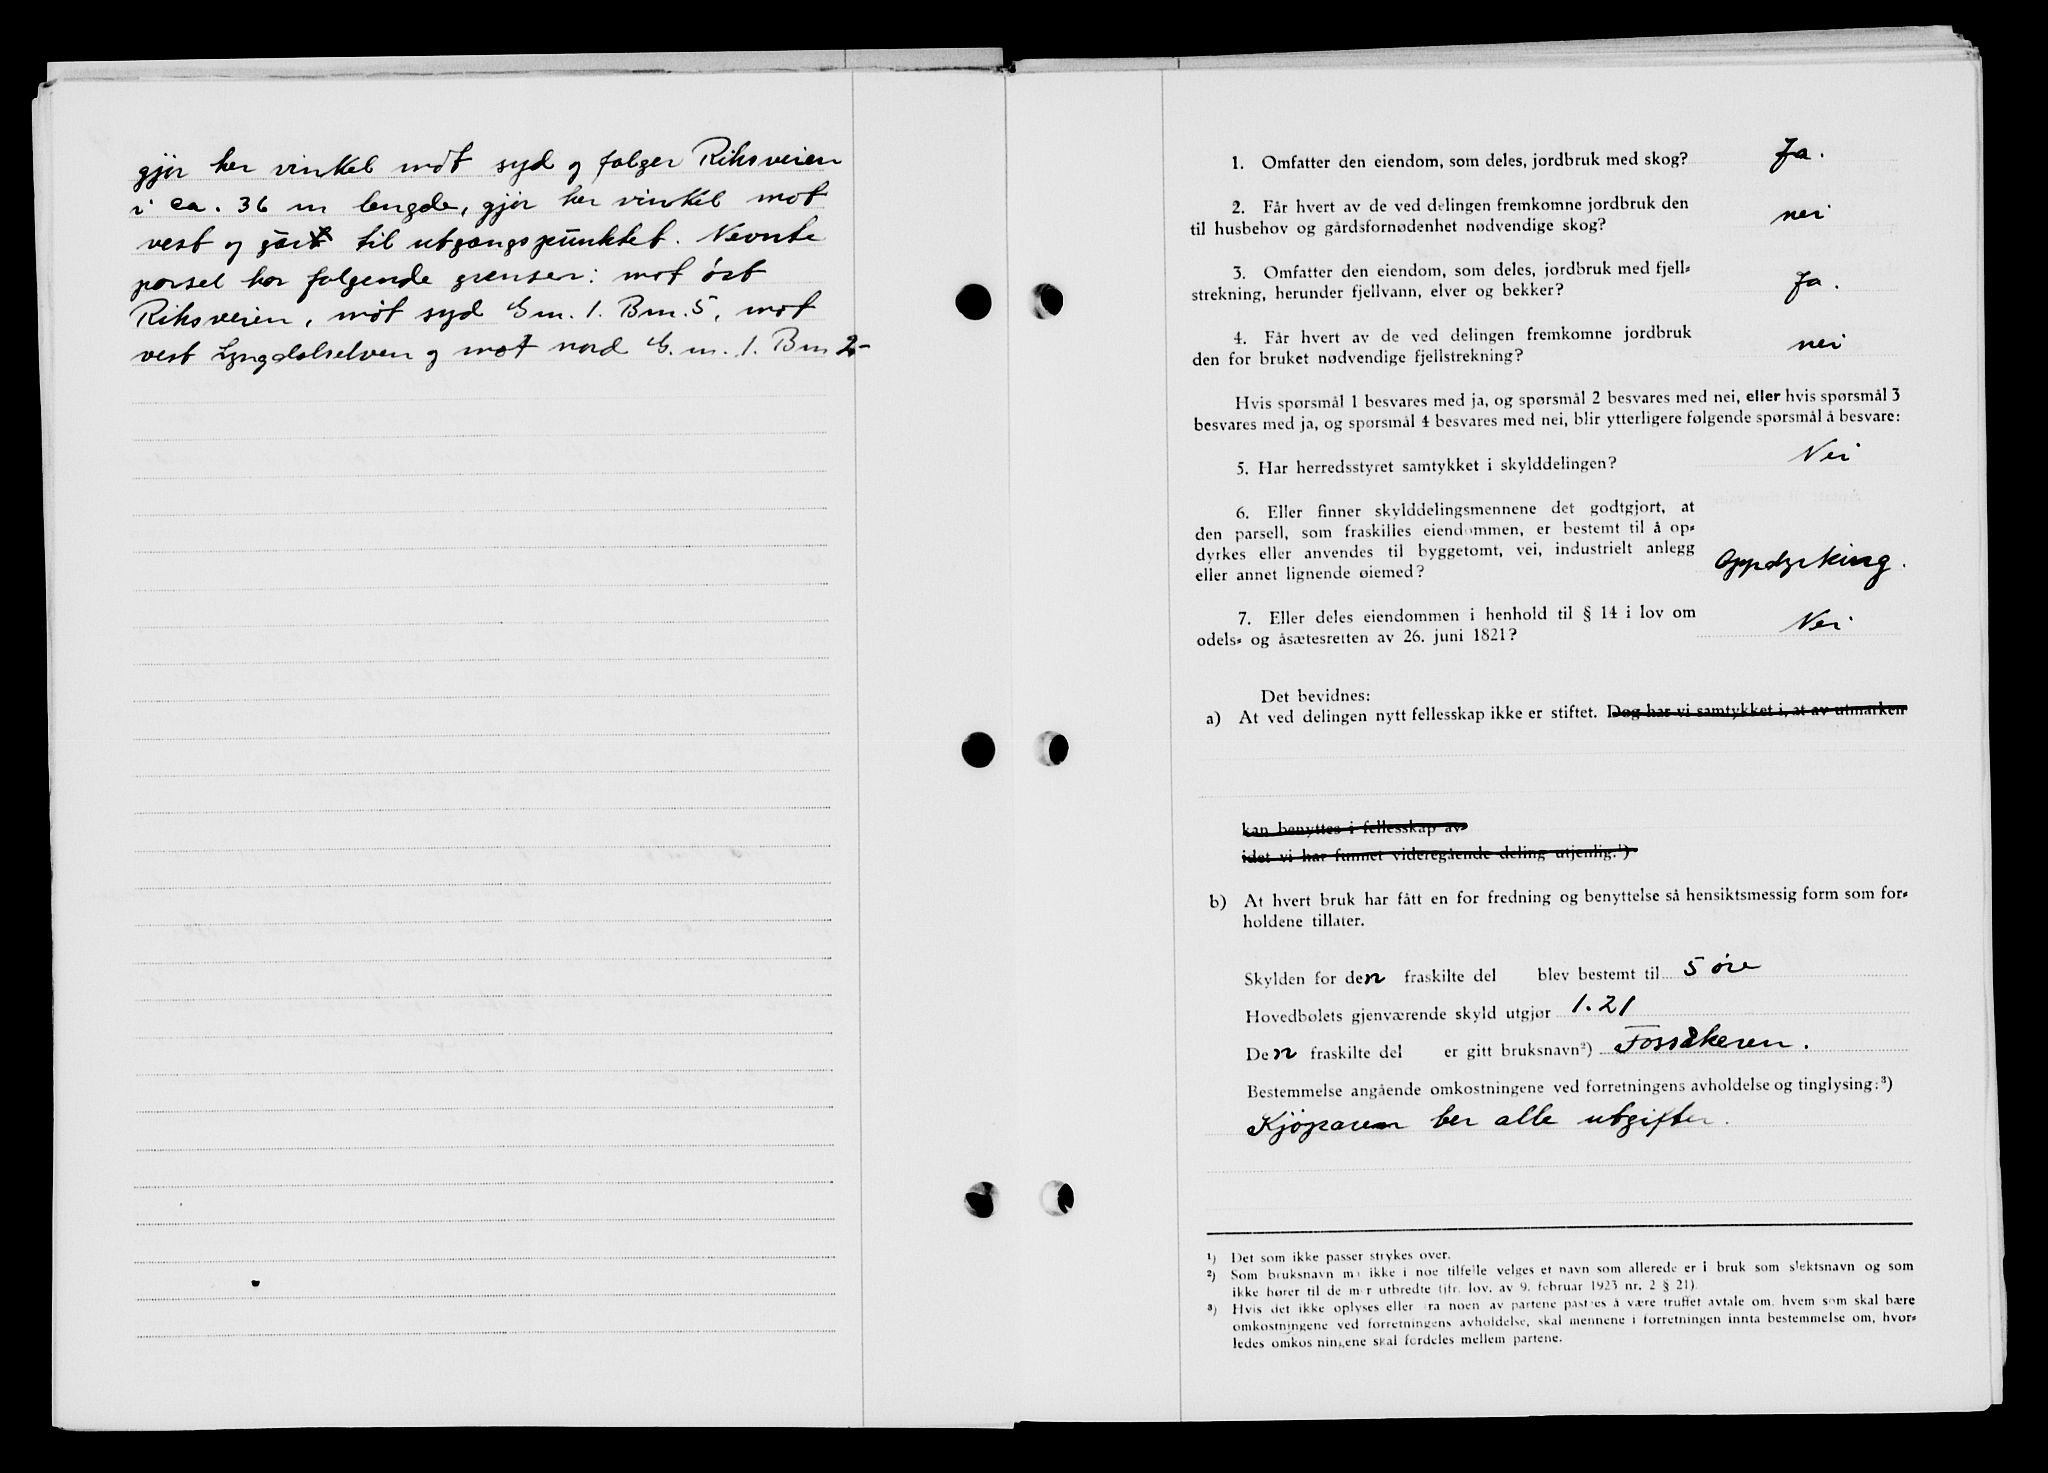 gjør her vinkel mot syd og følger Riksveien
i ca. 36 m lengde, gjør her vinkel mot
vest og går til utgangspunktet. Nevnte
parsel har følgende grenser: mot øst
Riksveien, mot syd G.m. 1. Bm. 5, mot
vest Lyngdalselven og mot nord G. m. 1. Bm 2-
1. Omfatter den eiendom, som deles, jordbruk med skog? Ja.
2. Får hvert av de ved delingen fremkomne jordbruk den
til husbehov og gårdsfornødenhet nødvendige skog? nei
3. Omfatter den eiendom, som deles, jordbruk med fjell-
strekning, herunder fjellvann, elver og bekker? Ja.
4. Får hvert av de ved delingen fremkomne jordbruk
den for bruket nødvendige fjellstrekning? nei
Hvis spørsmål 1 besvares med ja, og spørsmål 2 besvares med nei, eller hvis spørsmål 3
besvares med ja, og spørsmål 4 besvares med nei, blir ytterligere følgende spørsmål å besvare:
5. Har herredsstyret samtykket i skylddelingen? Nei
6. Eller finner skylddelingsmennene det godtgjort, at
den parsell, som fraskilles eiendommen, er bestemt til å op-
dyrkes eller anvendes til byggetomt, vei, industrielt anlegg
eller annet lignende øiemed? Oppdyrking.
7. Eller deles eiendommen i henhold til § 14 i lov om
odels- og åsætesretten av 26. juni 1821? Nei
Det bevidnes:
a) At ved delingen nytt fellesskap ikke er stiftet. Dog har vi samtykket i, at av utmarken
kan benyttes i fellesskap av
idet vi har funnet videregående deling utjenlig.¹)
b) At hvert bruk har fått en for fredning og benyttelse så hensiktsmessig form som for-
holdene tillater.
Skylden for den fraskilte del blev bestemt til 5 øre
Hovedbølets gjenværende skyld utgjør 1.21
Den fraskilte del er gitt bruksnavn²) Fossåkeren.
Bestemmelse angående omkostningene ved forretningens avholdelse og tinglysing:³)
Kjøparen ber alle utgifter.
¹) Det som ikke passer strykes over.
²) Som bruksnavn må ikke i noe tilfelle velges et navn som allerede er i bruk som slektsnavn og som
ikke hører til de mer utbredte (jfr. lov. av 9. februar 1923 nr. 2 § 21).
³) Hvis det ikke oplyses eller fra noen av partene påståes å være truffet avtale om, hvem som skal bære
omkostningene ved forretningens avholdelse, skal mennene i forretningen innta bestemmelse om, hvor-
ledes omkostningene skal fordeles mellem partene.